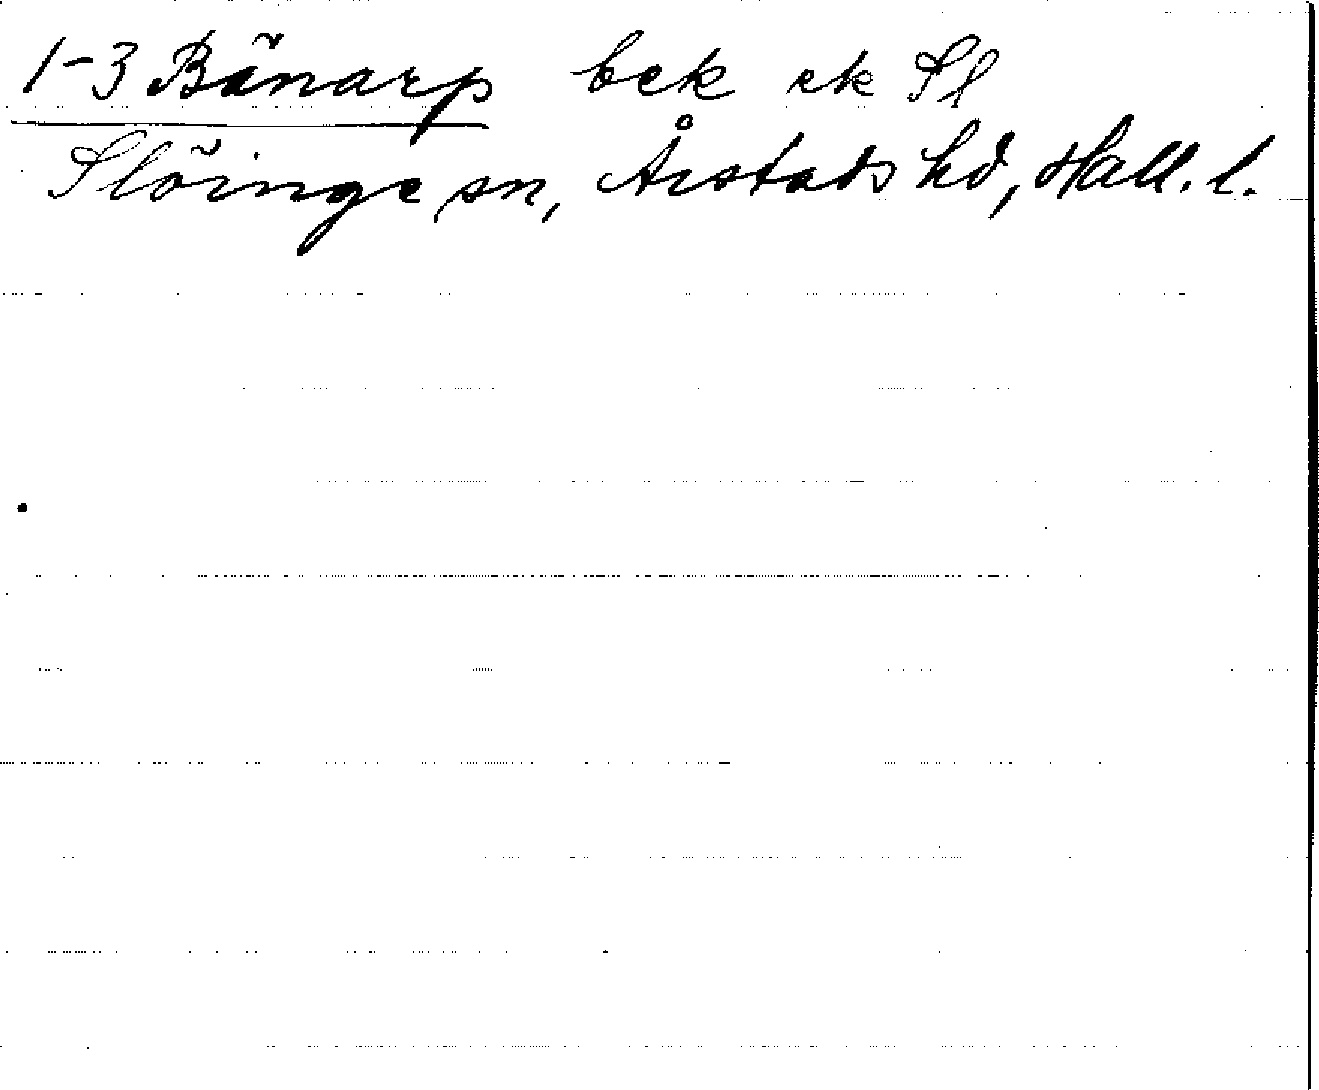 1-3 Bänarp bek ek Sl
Slöinge sn, Årstads hd, Hall. l.